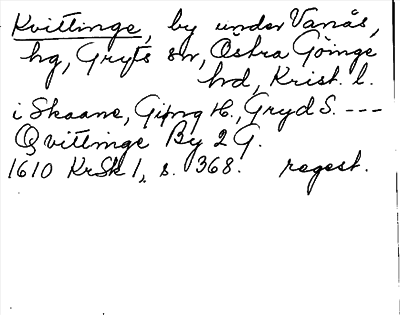 Kvittinge, by under Vanås,
hg, Gryts sn, Östra Göinge
hd, Krist. l.
i Skaane, Giøng H., Gryd S. ---
Qvittinge By 2 G.
1610 KrSk 1, s. 368. regest.